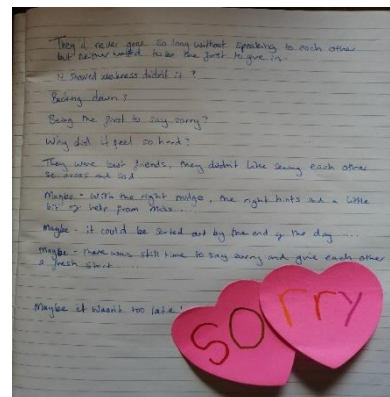 They'd never gone so long without speaking to each other
but neither wanted to be the first to give in.
It showed weakness didn't it?
Backing down?
Being the first to say sorry?
Why did it feel so hard?
They were best friends, they didn't like seeing each other
so cross and sad
Maybe - with the right nudge, the right hints and a little
bit of help from Miss...
Maybe - it could be sorted out by the end of the day
Maybe - there was still time to say sorry and give each other
a fresh start...
Maybe it wasn't too late!
SO rry